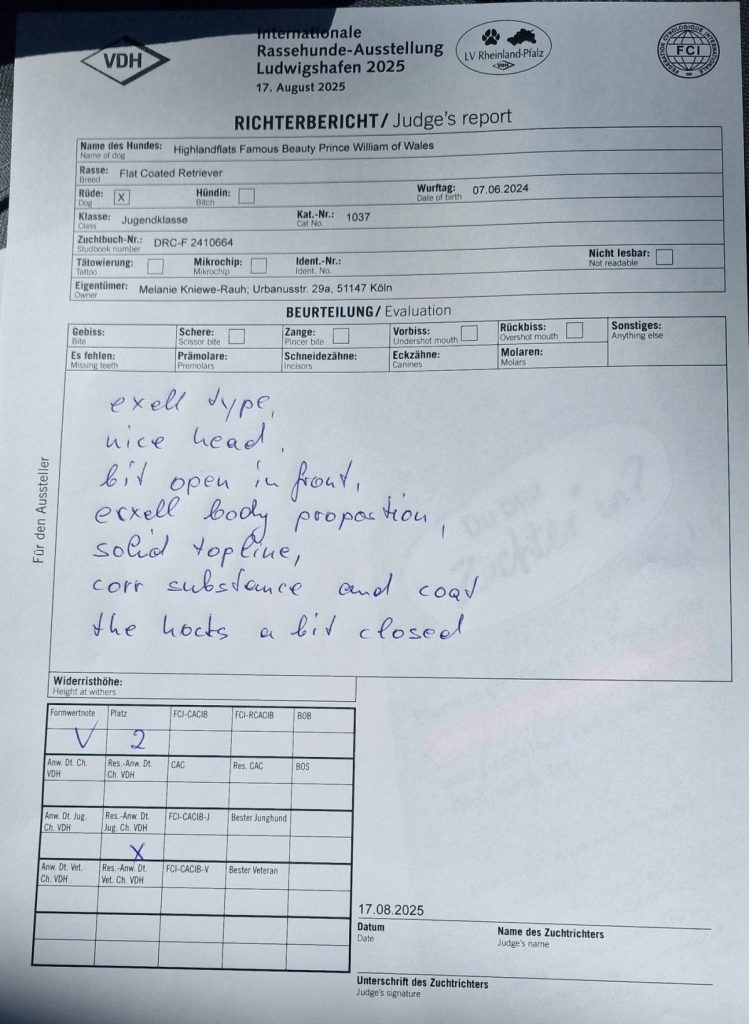 VDH
Internationale
Rassehunde-Ausstellung
Ludwigshafen 2025
17. August 2025
LV Rheinland-Pfalz
VDH
FEDERATION CYNOLOGIQUE INTERNATIONALE
FCI
RICHTERBERICHT/ Judge's report
Name des Hundes: Highlandflats Famous Beauty Prince William of Wales
Name of dog
Rasse: Flat Coated Retriever
Breed
Rüde: X Hündin: Wurftag: 07.06.2024
Dog Bitch Date of birth
Klasse: Jugendklasse Kat.-Nr.: 1037
Class Cat No.
Zuchtbuch-Nr.: DRC-F 2410664
Studbook number
Tätowierung: Mikrochip: Ident.-Nr.: Nicht lesbar:
Tattoo Mikrochip Ident. No. Not readable
Eigentümer: Melanie Kniewe-Rauh; Urbanusstr. 29a, 51147 Köln
Owner
BEURTEILUNG/ Evaluation
Gebiss: Schere: Zange: Vorbiss: Rückbiss: Sonstiges:
Bite Scissor bite Pincer bite Undershot mouth Overshot mouth Anything else
Es fehlen: Prämolare: Schneidezähne: Eckzähne: Molaren:
Missing teeth Premolars Incisors Canines Molars
Für den Aussteller
exell type,
nice head,
bit open in front,
erxell body propostion,
solid topline,
corr substance and coat
the hocts a bit closed
Widerristhöhe:
Height at withers
Formwertnote Platz FCI-CACIB FCI-RCACIB BOB
V 2
Anw. Dt. Ch. VDH Res.-Anw. Dt. Ch. VDH CAC Res. CAC BOS
Anw. Dt. Jug. Ch. VDH Res.-Anw. Dt. Jug. Ch. VDH FCI-CACIB-J Bester Junghund
X
Anw. Dt. Vet. Ch. VDH Res.-Anw. Dt. Vet. Ch. VDH FCI-CACIB-V Bester Veteran
17.08.2025
Datum Name des Zuchtrichters
Date Judge's name
Unterschrift des Zuchtrichters
Judge's signature